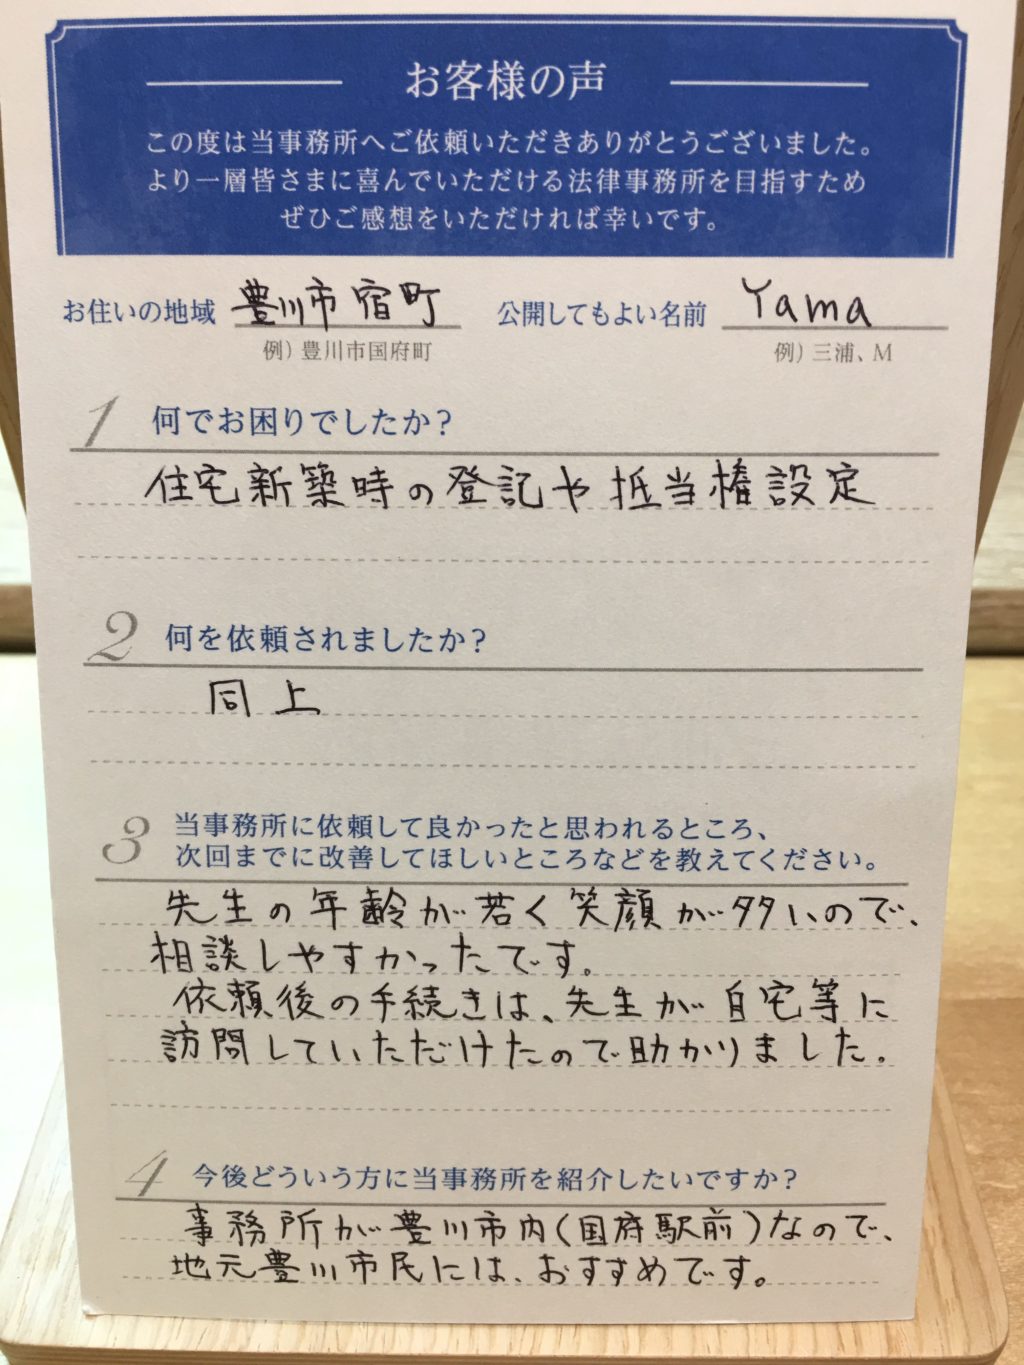 お客様の声
この度は当事務所へご依頼いただきありがとうございました。
より一層皆さまに喜んでいただける法律事務所を目指すため
ぜひご感想をいただければ幸いです。
お住いの地域 豊川市宿町 公開してもよい名前 Yama
例）豊川市国府町 例）三浦、M
1 何でお困りでしたか？
住宅新築時の登記や抵当権設定
2 何を依頼されましたか？
同上
3 当事務所に依頼して良かったと思われるところ、
次回までに改善してほしいところなどを教えてください。
先生の年齢が若く笑顔が多いので、
相談しやすかったです。
依頼後の手続きは、先生が自宅等に
訪問していただけたので助かりました。
4 今後どういう方に当事務所を紹介したいですか？
事務所が豊川市内(国府駅前)なので、
地元豊川市民には、おすすめです。